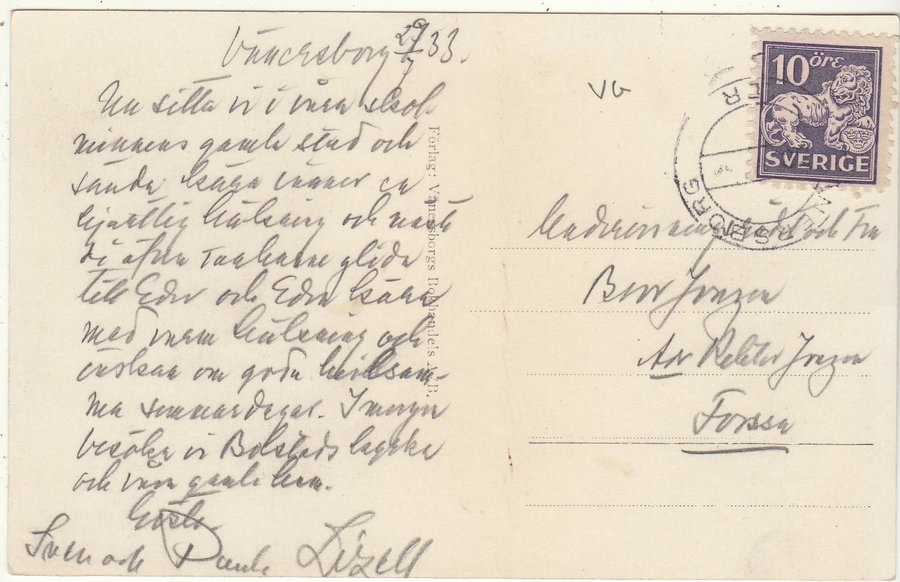 Vänersborg 29/7 33.
Nu sitta vi i våra skol-
minnens gamla stad och
sända kära vänner en
hjärtlig hälsning och
till Eder och Edra kära
med varm hälsning och
önskan om goda hälsosam-
ma sommardagar. I morgon
besöka vi Bolstads kyrka
och våra gamla hem.
Gösta
Sven och Paula Lizell
Förlag: Vänersborgs Bokhandels A.B.
VG
10 öre
SVERIGE
VÄNERSBORG
och Fru
Jonzon
Adr Rektor Jonzon
Forssa